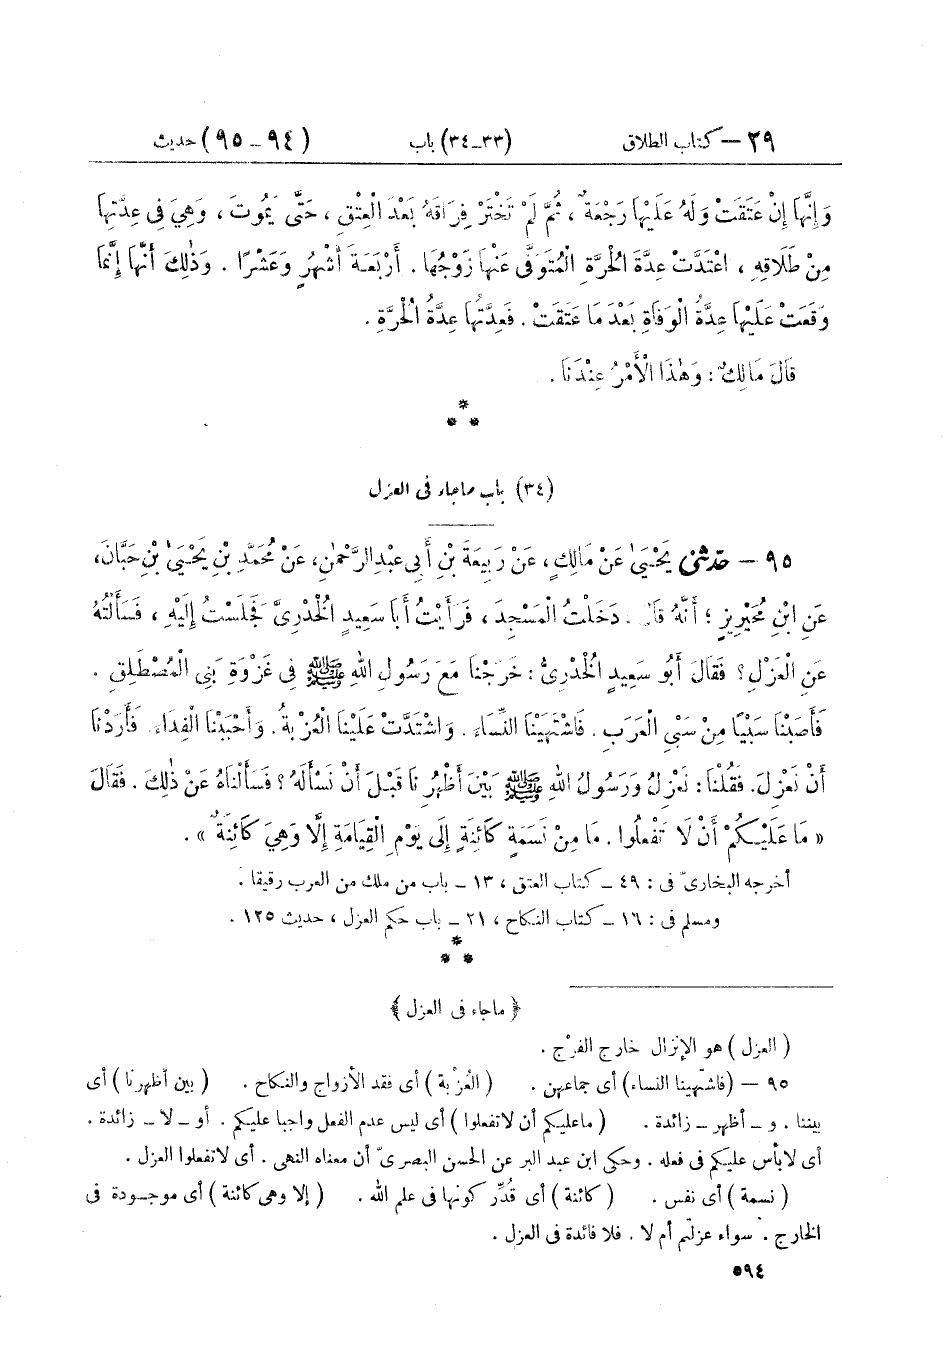 ٢٩ — كتاب الطلاق (٣٣ـ٣٤) باب (٩٤ ـ ٩٥) حديث
وَإِنَّهَا إِنْ عَتَقَتْ وَلَهُ عَلَيْهَا رَجْعَةٌ ، ثُمَّ لَمْ تَخْتَرْ فِرَاقَهُ بَعْدَ الْعِتْقِ ، حَتَّى يَمُوتَ ، وَهِيَ فِي عِدَّتِهَا
مِنْ طَلَاقِهِ ، اعْتَدَّتْ عِدَّةَ الْحُرَّةِ الْمُتَوَفَّى عَنْهَا زَوْجُهَا . أَرْبَعَةَ أَشْهُرٍ وَعَشْرًا . وَذٰلِكَ أَنَّهَا إِنَّمَا
وَقَعَتْ عَلَيْهَا عِدَّةُ الْوَفَاةِ بَعْدَ مَا عَتَقَتْ . فَعِدَّتُهَا عِدَّةُ الْحُرَّةِ .
قَالَ مَالِكٌ : وَهٰذَا الْأَمْرُ عِنْدَنَا .
*
* *
(٣٤) باب ماجاء فى العزل
٩٥ — حَدَّثَنِي يَحْيَىٰ عَنْ مَالِكٍ ، عَنْ رَبِيعَةَ بْنِ أَبِي عَبْدِ الرَّحْمٰنِ، عَنْ مُحَمَّدِ بْنِ يَحْيَىٰ بْنِ حَبَّانَ،
عَنِ ابْنِ مُحَيْرِيزٍ ؛ أَنَّهُ قَالَ . دَخَلْتُ الْمَسْجِدَ ، فَرَأَيْتُ أَبَا سَعِيدٍ الْخُدْرِيَّ فَجَلَسْتُ إِلَيْهِ ، فَسَأَلْتُهُ
عَنِ الْعَزْلِ ؟ فَقَالَ أَبُو سَعِيدٍ الْخُدْرِيُّ : خَرَجْنَا مَعَ رَسُولِ اللهِ ﷺ فِي غَزْوَةِ بَنِي الْمُصْطَلِقِ .
فَأَصَبْنَا سَبْيًا مِنْ سَبْيِ الْعَرَبِ . فَاشْتَهَيْنَا النِّسَاءَ . وَاشْتَدَّتْ عَلَيْنَا الْعُزْبَةُ . وَأَحْبَبْنَا الْفِدَاءَ . فَأَرَدْنَا
أَنْ نَعْزِلَ. فَقُلْنَا : نَعْزِلُ وَرَسُولُ اللهِ ﷺ بَيْنَ أَظْهُرِنَا قَبْلَ أَنْ نَسْأَلَهُ ؟ فَسَأَلْنَاهُ عَنْ ذٰلِكَ . فَقَالَ
« مَا عَلَيْكُمْ أَنْ لَا تَفْعَلُوا . مَا مِنْ نَسَمَةٍ كَائِنَةٍ إِلَى يَوْمِ الْقِيَامَةِ إِلَّا وَهِيَ كَائِنَةٌ » .
أخرجه البخارىّ فى : ٤٩ ـ كتاب العتق ، ١٣ ـ باب من ملك من العرب رقيقا .
ومسلم فى : ١٦ ـ كتاب النكاح ، ٢١ ـ باب حكم العزل ، حديث ١٢٥ .
*
* *
﴿ ماجاء فى العزل ﴾
( العزل ) هو الإنزال خارج الفرْج .
٩٥ — (فاشتهينا النساء) أى جماعهن . (العُزْبة) أى فقد الأزواج والنكاح . ( بين أظهرنا ) أى
بيننا . و ـ أظهر ـ زائدة . ( ماعليكم أن لاتفعلوا ) أى ليس عدم الفعل واجبا عليكم . أو ـ لا ـ زائدة .
أى لابأس عليكم فى فعله . وحكى ابن عبد البر عن الحسن البصرىّ أن معناه النهى . أى لاتفعلوا العزل .
( نسمة ) أى نفس . ( كائنة ) أى قُدِّر كونها فى علم الله . ( إلا وهى كائنة ) أى موجودة فى
الخارج . سواء عزلتم أم لا . فلا فائدة فى العزل .
٥٩٤